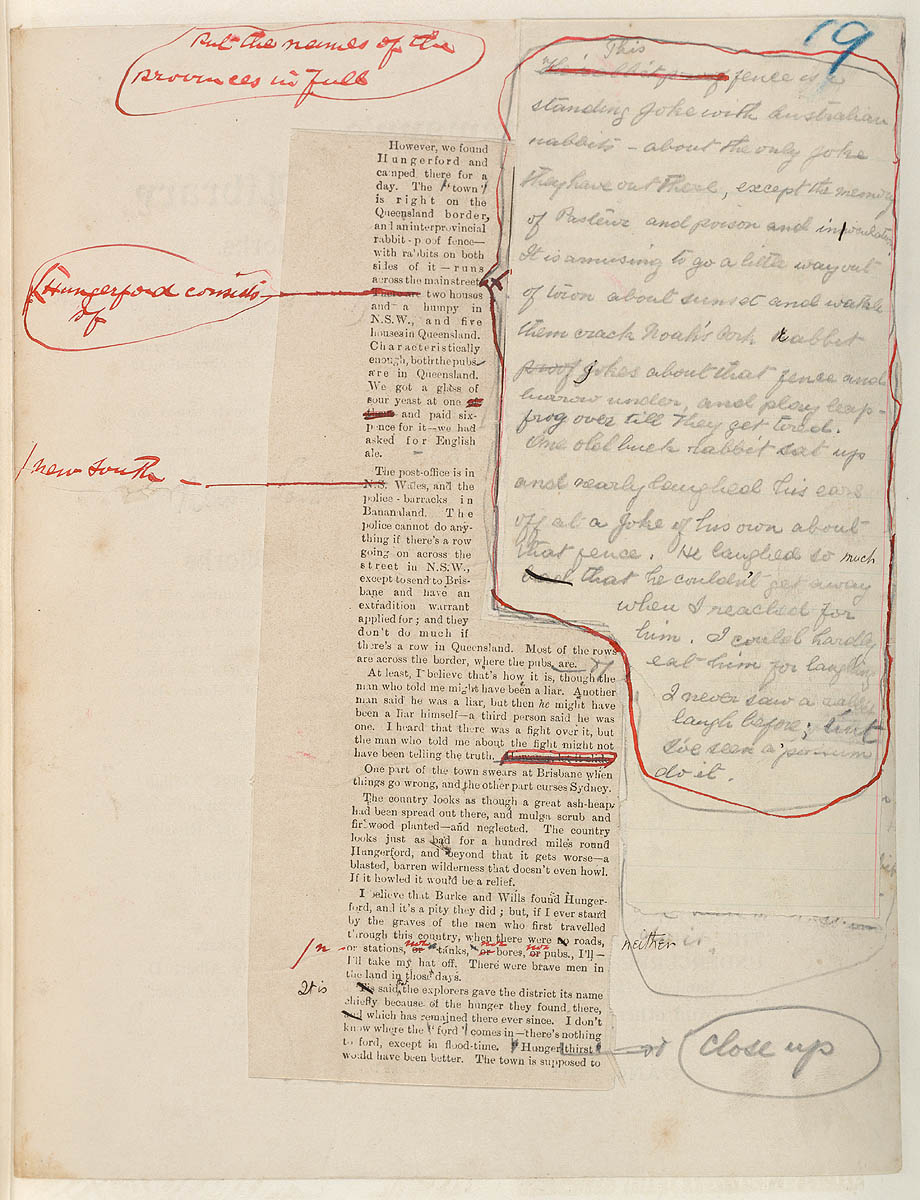 19
Put the names of the
provinces in full
However, we found
Hungerford and
camped there for a
day. The "town"
is right on the
Queensland border,
and an interprovincial
rabbit-p oof fence—
with ra bits on both
sides of it—runs
across the main street.
There are two houses
and a humpy in
N.S.W., and five
houses in Queensland.
Characteristically
enough, both the pubs
are in Queensland.
We got a glass of
sour yeast at one of
them and paid six-
pence for it—we had
asked for English
ale.
The post-office is in
N.S. Wales, and the
police-barracks in
Bananaland. The
police cannot do any-
thing if there's a row
going on across the
street in N.S.W.,
except to send to Bris-
bane and have an
extradition warrant
applied for; and they
don't do much if
there's a row in Queensland. Most of the rows
are across the border, where the pubs are.
At least, I believe that's how it is, though the
man who told me might have been a liar. Another
man said he was a liar, but then he might have
been a liar himself—a third person said he was
one. I heard that there was a fight over it, but
the man who told me about the fight might not
have been telling the truth.
One part of the town swears at Brisbane when
things go wrong, and the other part curses Sydney.
The country looks as though a great ash-heap
had been spread out there, and mulga scrub and
firewood planted—and neglected. The country
looks just as bad for a hundred miles round
Hungerford, and beyond that it gets worse—a
blasted, barren wilderness that doesn't even howl.
If it howled it would be a relief.
I believe that Burke and Wills found Hunger-
ford, and it's a pity they did; but, if I ever stand
by the graves of the men who first travelled
through this country, when there were no roads,
or stations, or tanks, or bores, or pubs, I'll—
I'll take my hat off. There were brave men in
the land in those days.
'Tis said the explorers gave the district its name
chiefly because of the hunger they found there,
and which has remained there ever since. I don't
know where the "ford" comes in—there's nothing
to ford, except in flood-time. Hungerthirst
would have been better. The town is supposed to
Hungerford consists
of
/ New South
/n
nor nor nor
neither
It is
close up
X
This
The rabbit proof fence is a
standing joke with Australian
rabbits – about the only joke
they have out there, except the memory
of Pasteur and poison and inoculation.
It is amusing to go a little way out
of town about sunset and watch
them crack Noah's Ark rabbit
proof jokes about that fence and
burrow under, and play leap-
frog over till they get tired.
One old buck rabbit sat up
and nearly laughed his ears
off at a joke of his own about
that fence. He laughed so much
that he couldn't get away
when I reached for
him. I could hardly
eat him for laughing
I never saw a rabbit
laugh before; but
I've seen a 'possum
do it.